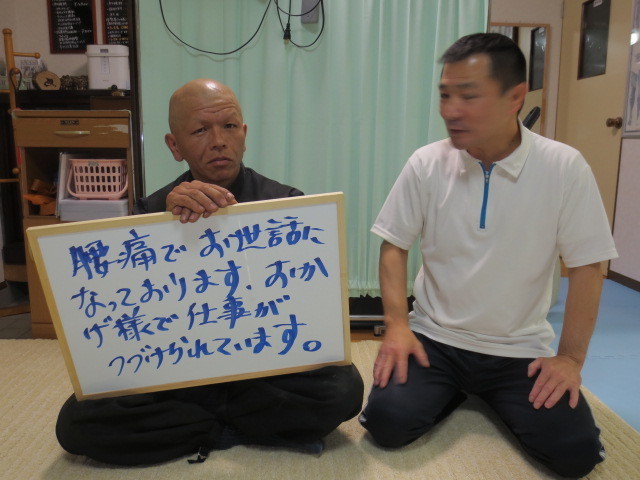 腰痛でお世話に
なっております、おか
げ様で仕事が
つづけられています。